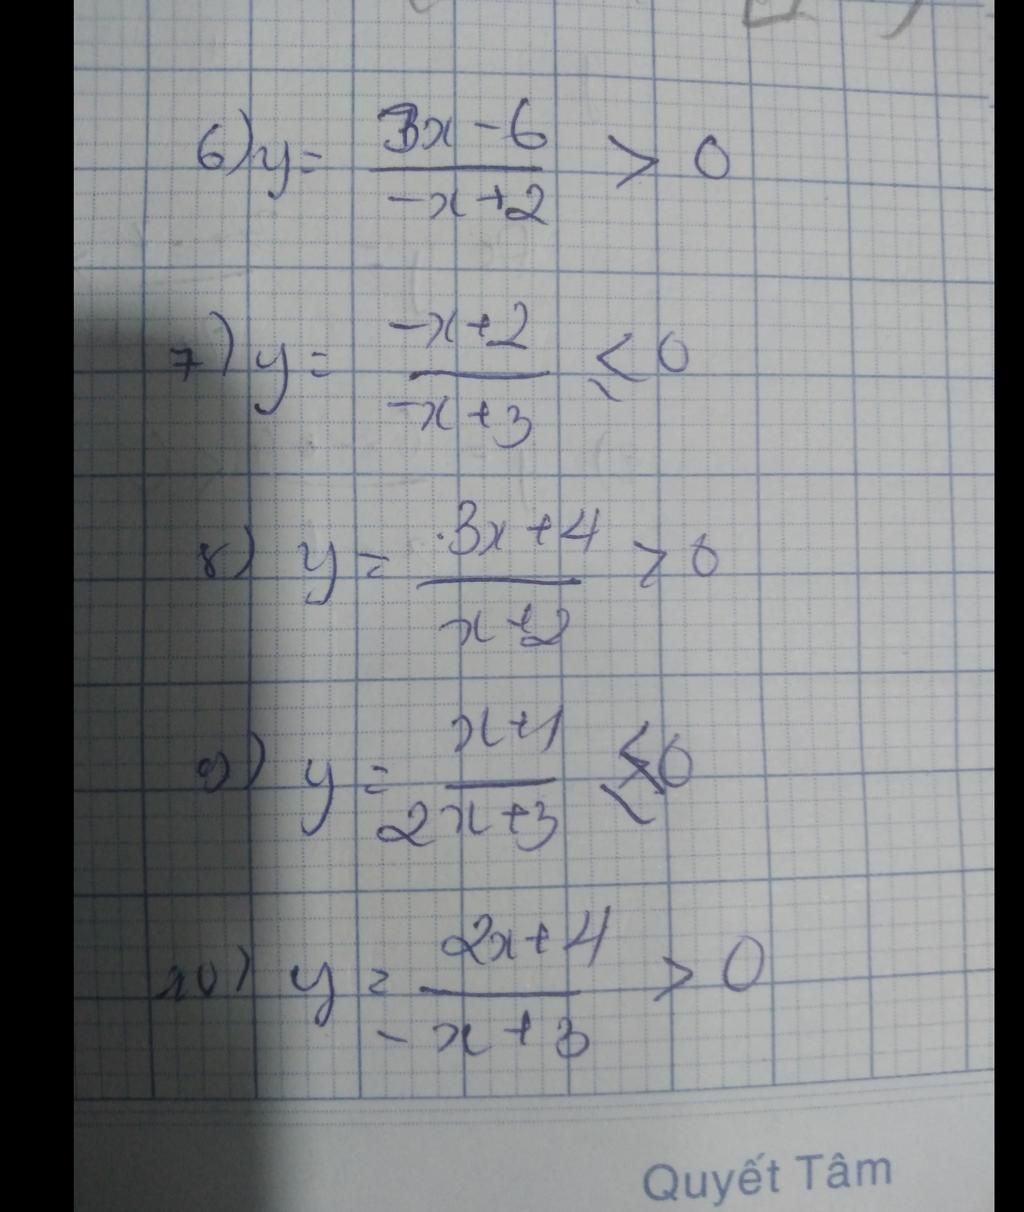 6) y = (3x - 6)/(-x + 2) > 0
7) y = (-x + 2)/(-x + 3) ≤ 0
8) y = (3x + 4)/(x + 2) > 0
9) y = (x + 1)/(2x + 3) ≤ 0
10) y = (2x + 4)/(-x + 3) > 0
Quyết Tâm